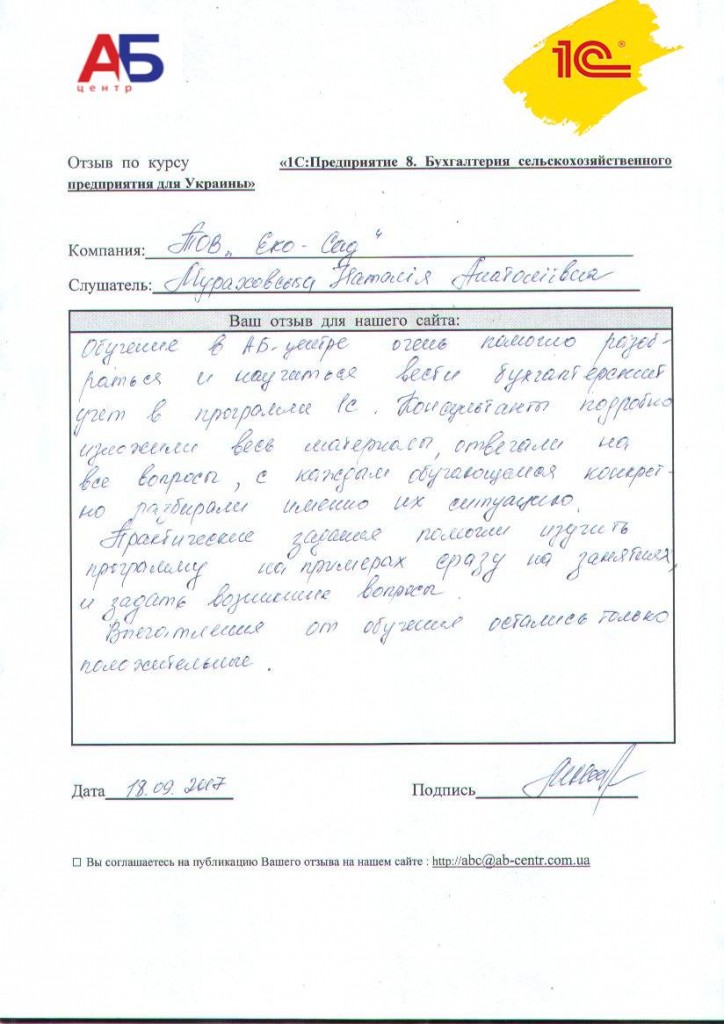 АБ
центр
1С®
Отзыв по курсу «1С:Предприятие 8. Бухгалтерия сельскохозяйственного
предприятия для Украины»
Компания: ТОВ „ Еко - Сад "
Слушатель: Мураховська Наталія Анатоліївна
Ваш отзыв для нашего сайта:
Обучение в АБ-центре очень помогло разоб-
раться и научиться вести бухгалтерский
учет в программе 1с. Консультанты подробно
изложили весь материал, отвечали на
все вопросы, с каждым обучающемся конкрет-
но разбирали именно их ситуацию.
Практические задания помогли изучить
программу на примерах сразу на занятиях,
и задать возникшие вопросы.
Впечатления от обучения остались только
положительные.
Дата 18.09.2017 Подпись
☐ Вы соглашаетесь на публикацию Вашего отзыва на нашем сайте : http://abc@ab-centr.com.ua